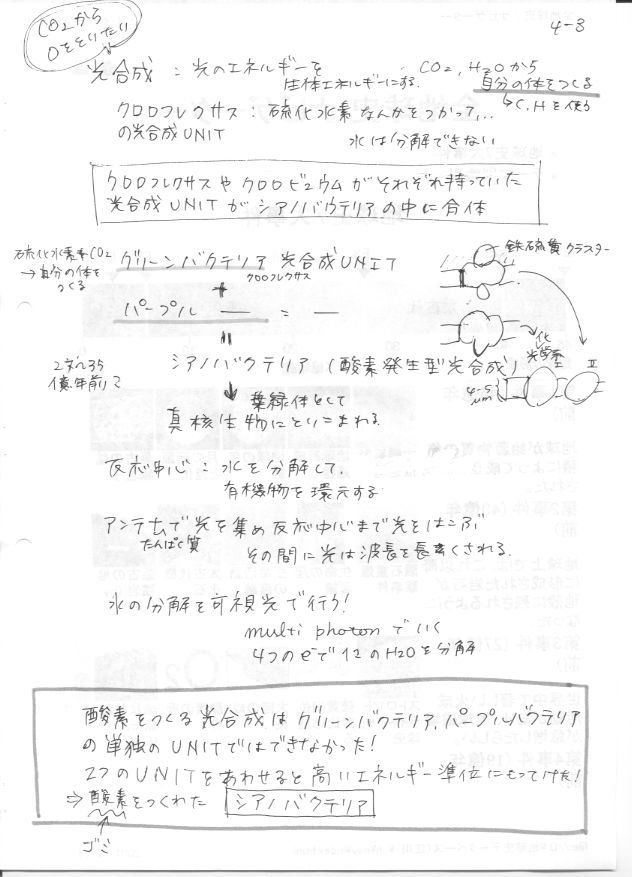 CO2から
Oをとりたい
4-3
光合成：光のエネルギーを
生体エネルギーにする.
CO2, H2Oから
自分の体をつくる
↳C, Hを使う
クロロフレクサス：硫化水素なんかをつかって...
の光合成UNIT
水は分解できない
クロロフレクサスやクロロビュウムがそれぞれ持っていた
光合成UNITがシアノバクテリアの中に合体
硫化水素やCO2
→自分の体を
つくる
グリーンバクテリア 光合成UNIT
クロロフレクサス
+
パープル — 〃 —
鉄硫黄クラスター
光化学系
I
II
4-5
μm
シアノバクテリア（酸素発生型光合成）
億年前
葉緑体として
真核生物にとりこまれる
反応中心：水を分解して、
有機物を還元する
アンテナで光を集め反応中心まで光をはこぶ
たんぱく質
その間に光は波長を長くされる.
水の分解を可視光で行う!
multi photonでいく
4つのeで1つのH2Oを分解
酸素をつくる光合成はグリーンバクテリア, パープルバクテリア
の単独のUNITではできなかった!
2つのUNITをあわせると高いエネルギー準位にもってけた!
⇒酸素をつくれた シアノバクテリア
ゴミ